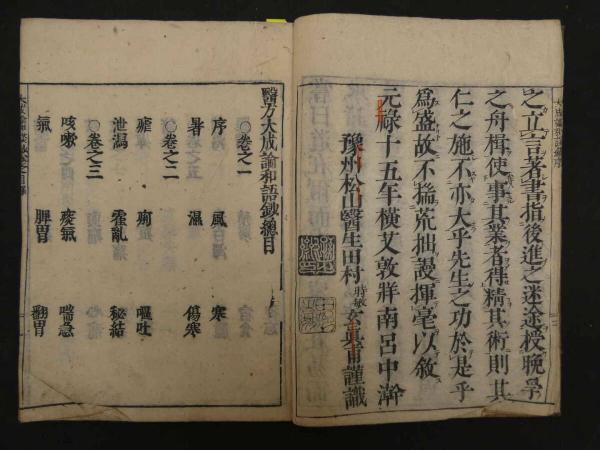 之立言著書指後進之迷途授晩學
之舟楫使事其業者得精其術則其
仁之施不亦大乎先生之功於是乎
爲盛故不揣荒拙謾揮毫以敘
元祿十五年橫艾敦牂南呂中澣
豫州松山醫生田村時敏玄眞甫謹識
醫方大成論和語鈔總目
○卷之一
序 風 寒
暑 濕 傷寒
○卷之二
瘧 痢 嘔吐
泄瀉 霍亂 秘結
○卷之三
咳嗽 痰氣 喘急
氣 脾胃 翻胃